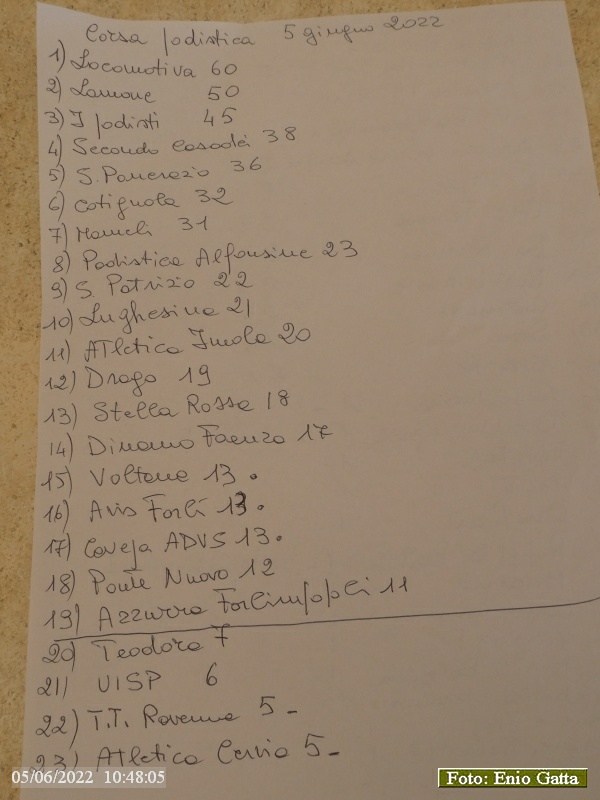 Corsa podistica 5 giugno 2022
1) Locomotiva 60
2) Lamone 50
3) I podisti 45
4) Secondo Casadei 38
5) S. Pancrazio 36
6) Cotignola 32
7) Mameli 31
8) Podistica Alfonsine 23
9) S. Patrizio 22
10) Lughesina 21
11) Atletica Imola 20
12) Drago 19
13) Stella Rossa 18
14) Dinamo Faenza 17
15) Voltana 13 .
16) Avis Forlì 13 .
17) Caveja ADVS 13 .
18) Ponte Nuovo 12
19) Azzurra Forlimpopoli 11
20) Teodora 7
21) UISP 6
22) T.T. Ravenna 5 -
23) Atletica Cervia 5 -
05/06/2022 10:48:05
Foto: Enio Gatta